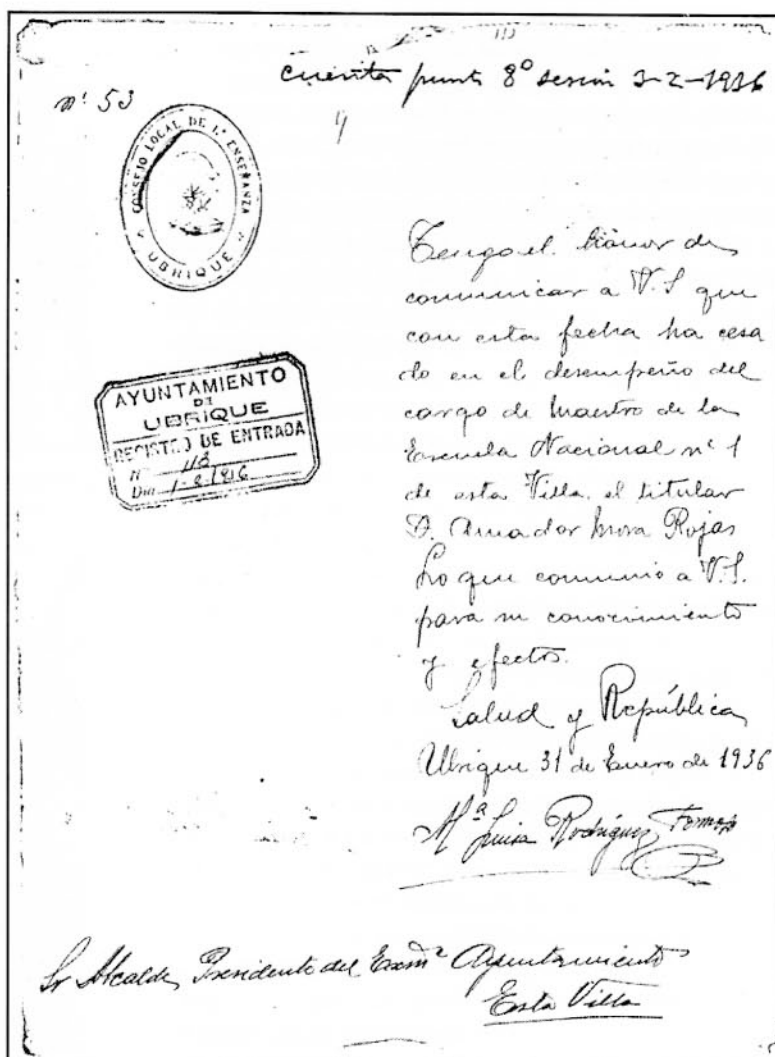 cuenta punto 8º sesión 3-2-1936
nº 53
CONSEJO LOCAL DE 1ª ENSEÑANZA
UBRIQUE
AYUNTAMIENTO
DE
UBRIQUE
REGISTRO DE ENTRADA
Nº 118
Día 1-2-1936
Tengo el honor de
comunicar a V.S que
con esta fecha ha cesa
do en el desempeño del
cargo de Maestro de la
Escuela Nacional nº 1
de esta Villa, el titular
D. Amador Mora Rojas
Lo que comunio a V.S.
para su conocimiento
y efectos.
Salud y República
Ubrique 31 de Enero de 1936
Mª Luisa Rodríguez
Sr Alcalde Presidente del Exmº Ayuntamiento
Esta Villa